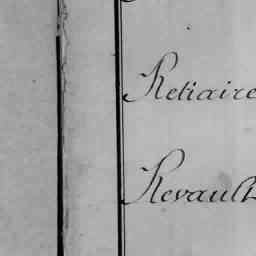 Retiaire
Revault